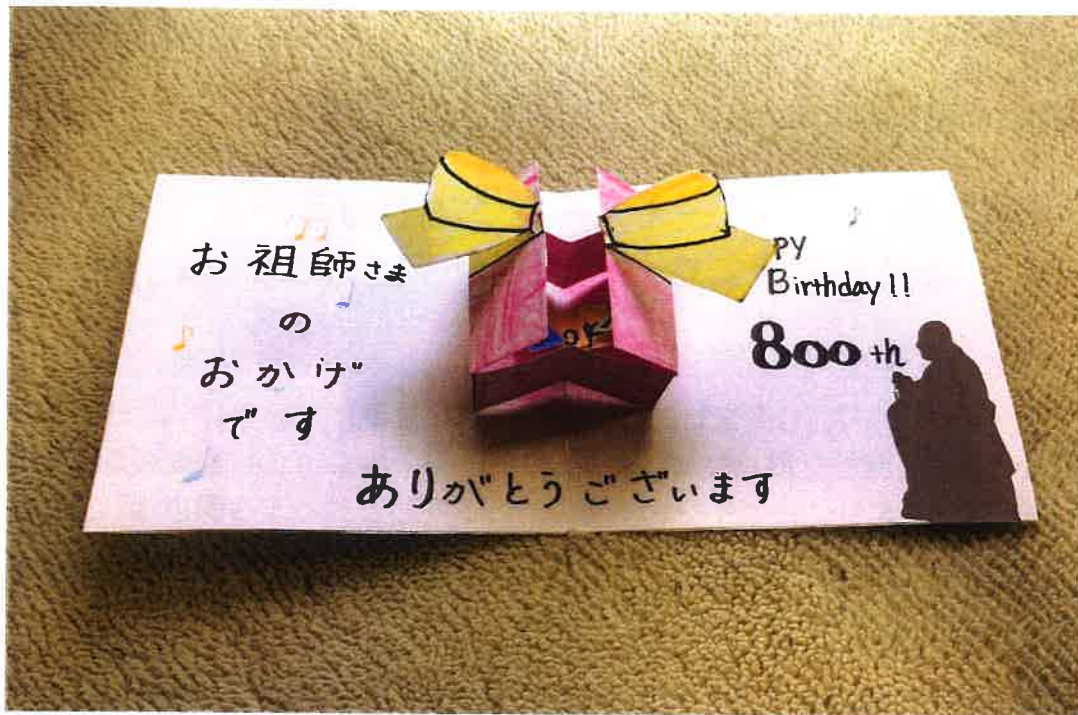 お祖師さま
の
おかげ
です
PY
Birthday!!
800th
ありがとうございます